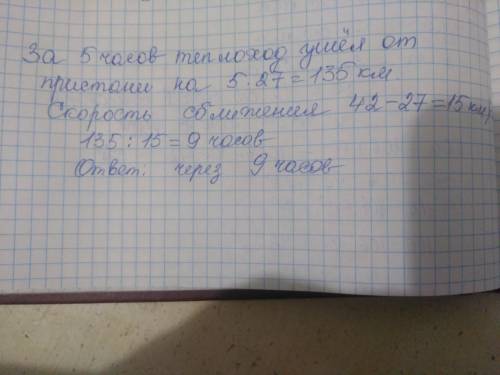 За 5 часов теплоход ушёл от
пристани на 5·27=135 км
Скорость сближения 42-27=15 км/
135:15=9 часов
Ответ: через 9 часов